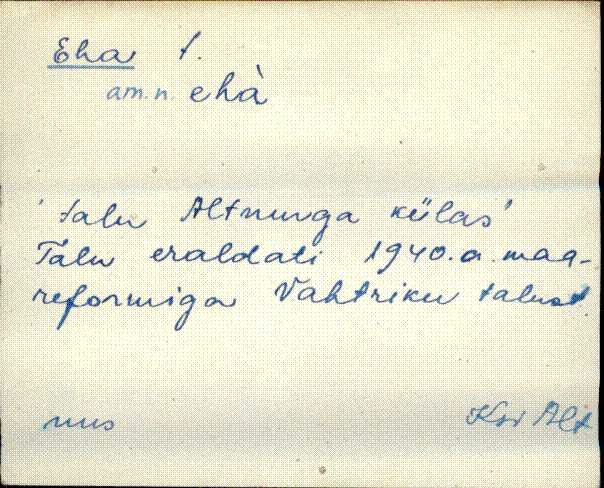 Eha t.
am.n. ehà
'talu Altnurga külas'
Talu eraldati 1940.a. maa-
reformiga Vahtriku talust.
nus
Ksi Alt